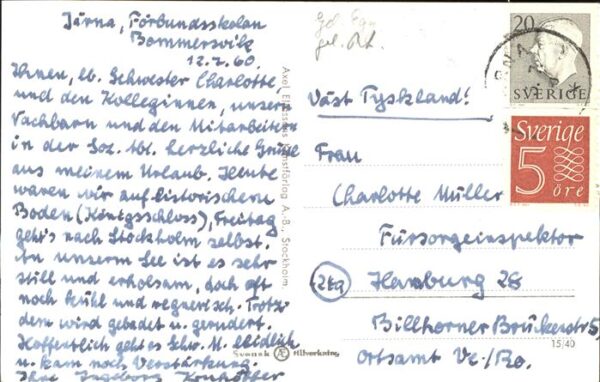 Järna, Förbundsskolan
Bommersvik
12.7.60.
Ihnen, lb. Schwester Charlotte,
und den Kolleginnen, unsern
Nachbarn und den Mitarbeitern
in der Soz. Abt. herzliche Grüße
aus meinem Urlaub. Heute
waren wir auf historischem
Boden (Königsschloss), Freitag
geht's nach Stockholm selbst.
An unserm See ist es sehr
still und erholsam, doch oft
noch kühl und regnerisch. Trotz-
dem wird gebadet u. gerudert.
Hoffentlich geht es Schw. M. leidlich
u. kam noch Verstärkung.
Ihre Ingeborg
Axel Eliassons Konstförlag A.-B., Stockholm.
Svensk Æ tillverkning
20
SVERIGE
Sverige
5
öre
Väst Tyskland!
Frau
Charlotte Müller
Fürsorgeinspektor
(24a) Hamburg 28
Billhorner Brückenstr. 5
Ortsamt Ve./Ro.
15/40